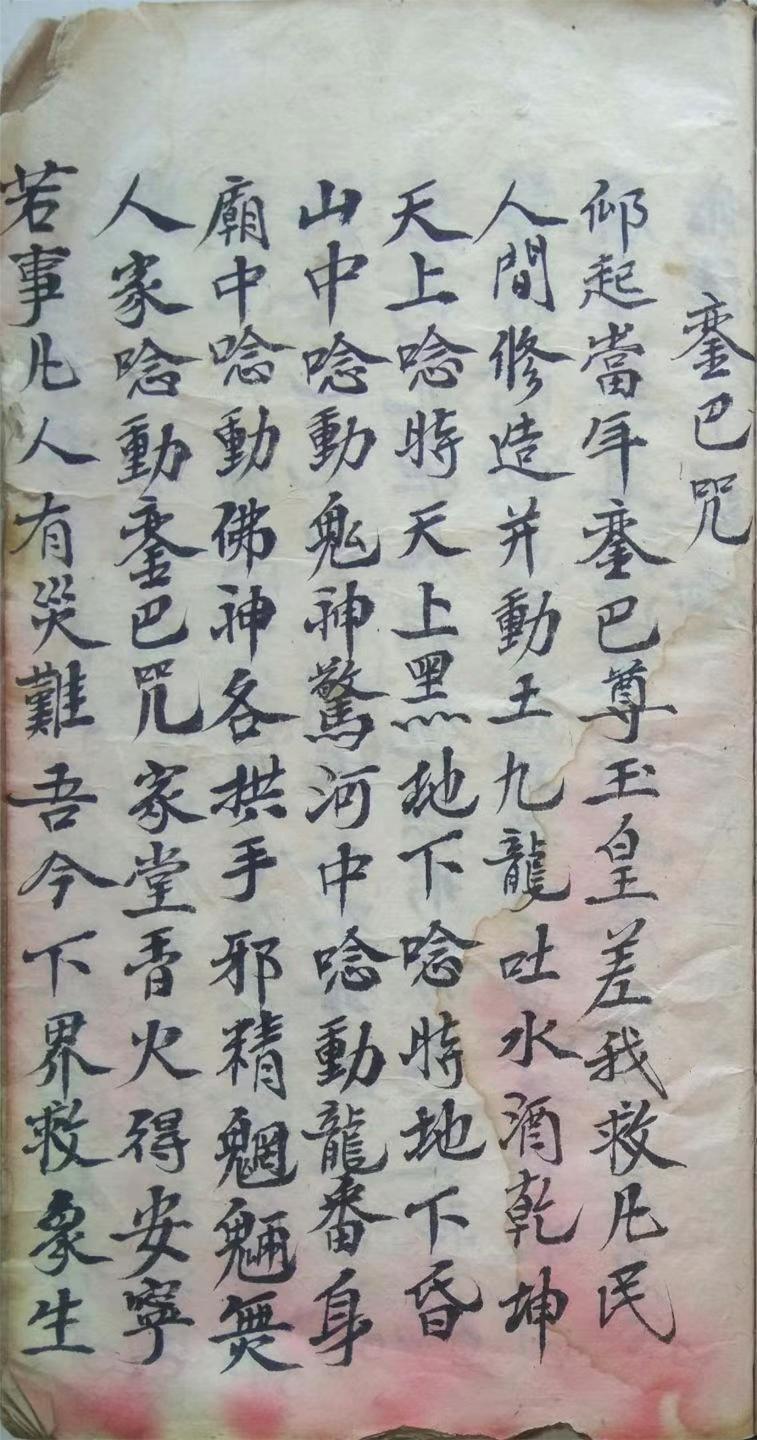 銮巴咒
仰起當年銮巴尊玉皇差我救凡民
人間修造并動土九龍吐水洒乾坤
天上唸時天上黑地下唸時地下昏
山中唸動鬼神驚河中唸動龍番身
廟中唸動佛神各拱手邪精魍魎無
人家唸動銮巴咒家堂香火得安寧
若事凡人有災難吾今下界救衆生